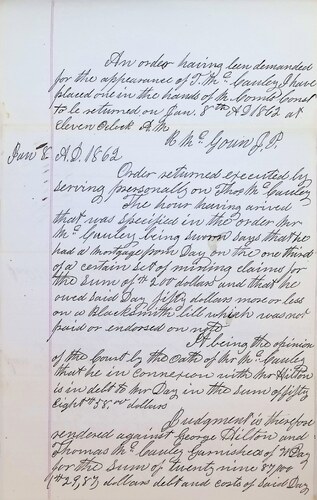 An order having been demanded
for the appearance of T. Mc Cauley I have
placed one in the hands of M Const
to be returned on Jan. 8th AD 1862 at
Eleven Oclock A.M.
R Mc Goun J.P.
Jan 8 A.D. 1862
Order returned executed by
serving personally on Thos Mc Cauley
The hour having arived
that was specified in the order Mr
Mc Cauley being sworn says that he
had a Mortgage from Day on the one third
of a certain set of mining claims for
the sum of $200 dollars and that he
owed said Day fifty dollars more or less
on a Blacksmith bill which was not
paid or endorsed on note
It being the opinion
of the Court by the Oath of Mr Mc Cauley
that he in connexion with Mr Hilton
is in debt to Mr Day in the sum of fifty
Eight $58.00 dollars
Judgment is therefore
rendered against George Hilton and
Thomas Mc Cauley Garnishees of Day
for the sum of twenty nine 87/100
$29,87 dollars debt and costs of said Day